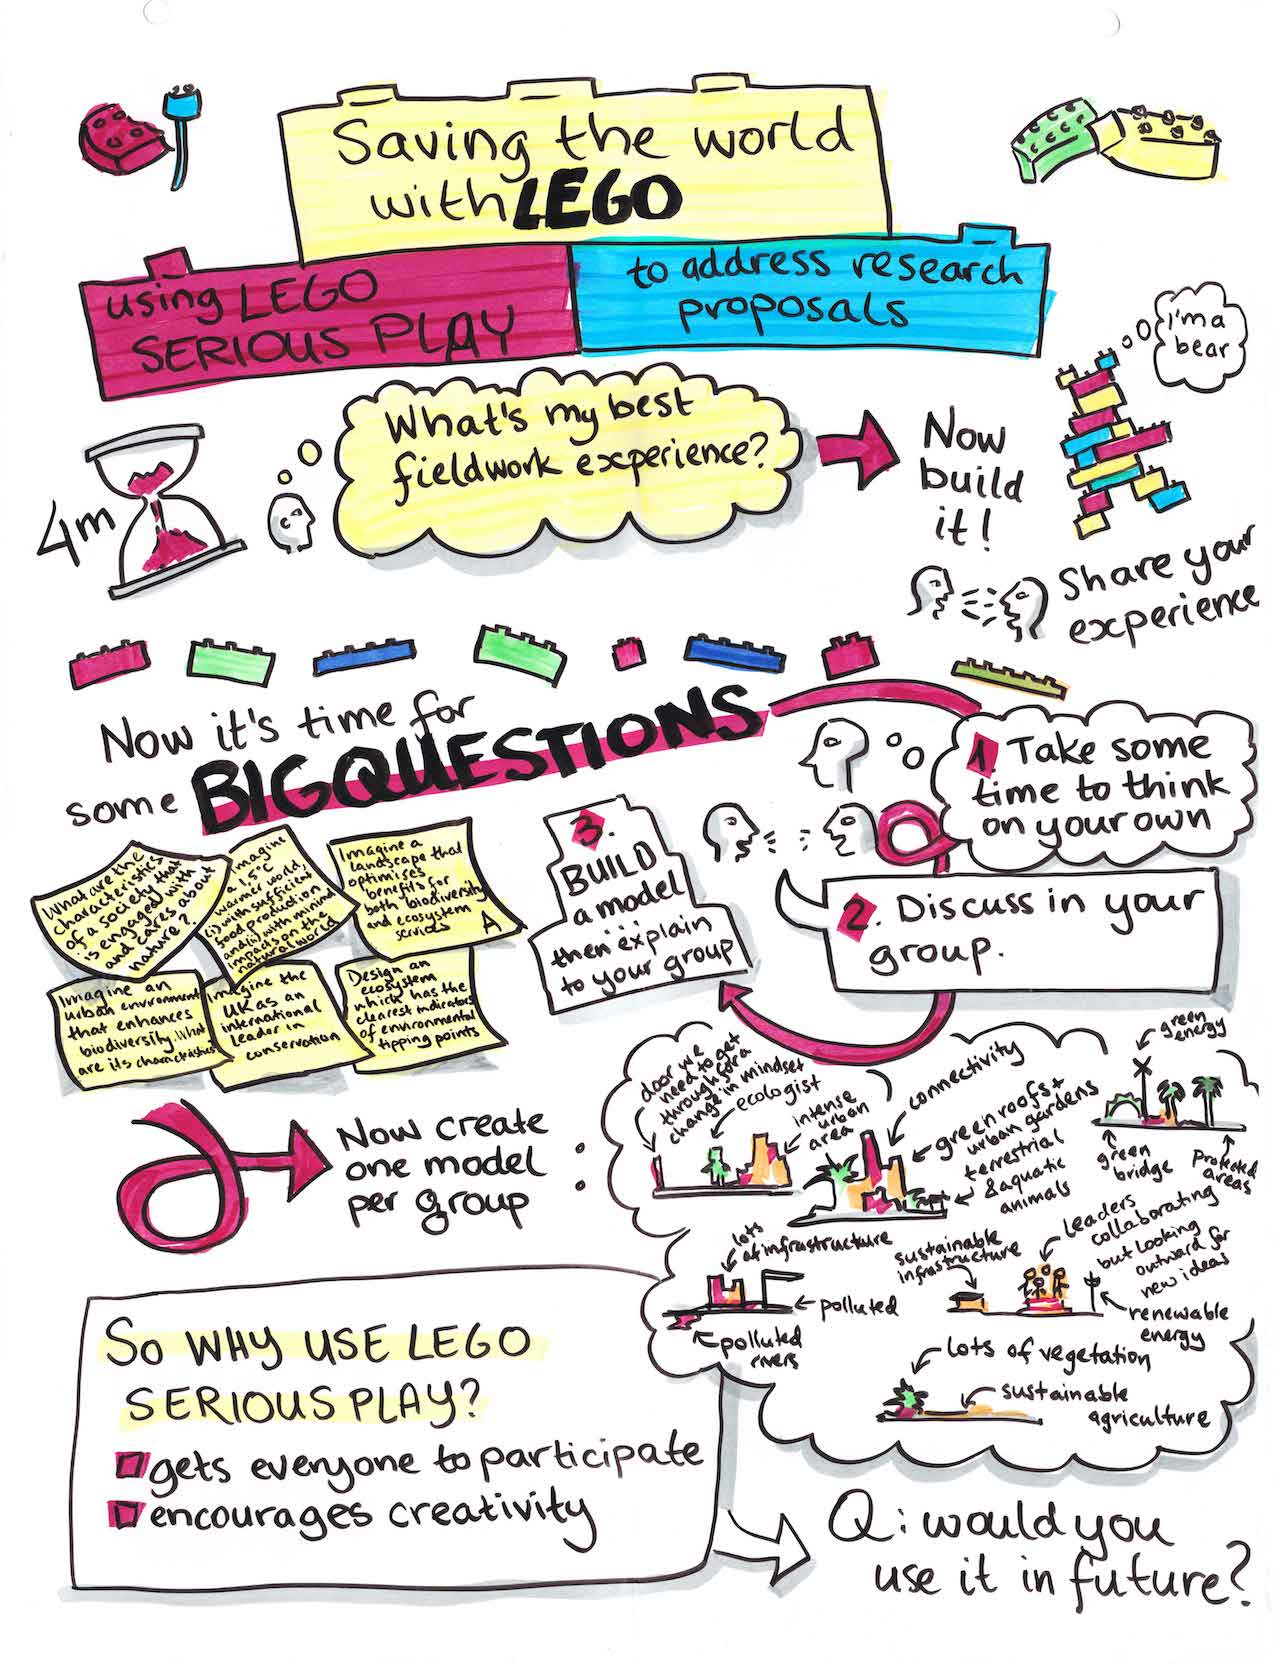 Saving the world
with LEGO
using LEGO
SERIOUS PLAY
to address research
proposals
I'm a
bear
4m
What's my best
fieldwork experience?
Now
build
it!
Share your
experience
Now it's time for
some BIG QUESTIONS
1. Take some
time to think
on your own
2. Discuss in your
group.
3.
BUILD
a model...
then explain
to your group
What are the
characteristics
of a society that
is engaged with
and cares about
nature?
Imagine
a 1,5°C
warmer world,
(i) with sufficient
food production
and (ii) with minimal
impacts on the
natural world
Imagine a
landscape that
optimises
benefits for
both biodiversity
and ecosystem
services
A
Imagine an
urban environment
that enhances
biodiversity. What
are its characteristics
Imagine the
UK as an
international
leader in
conservation
Design an
ecosystem
which has the
clearest indicators
of environmental
tipping points
Now create
one model
per group
:
door we
need to get
through for a
change in mindset
ecologist
intense
urban
area
connectivity
green roofs +
urban gardens
terrestrial
& aquatic
animals
green
energy
green
bridge
protected
areas
lots
of infrastructure
polluted
polluted
rivers
sustainable
infrastructure
Leaders
collaborating
but looking
outward for
new ideas
renewable
energy
lots of vegetation
sustainable
agriculture
SO WHY USE LEGO
SERIOUS PLAY?
gets everyone to participate
encourages creativity
Q: would you
use it in future?